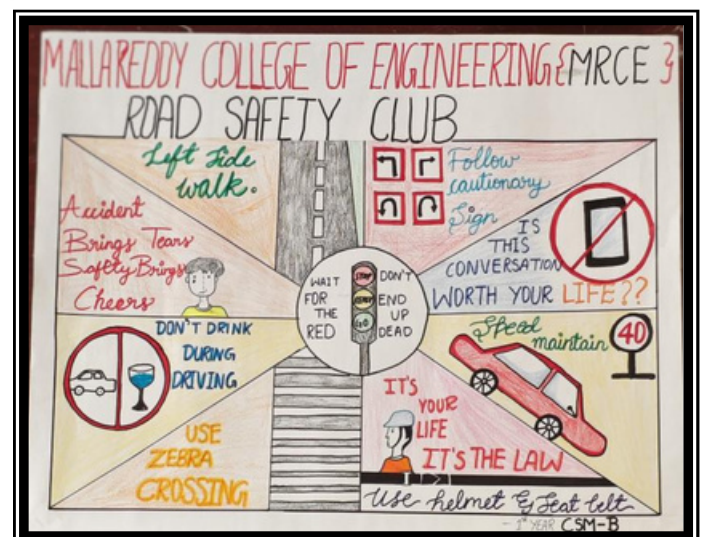 MALLAREDDY COLLEGE OF ENGINEERING {MRCE}
ROAD SAFETY CLUB
Left Side
walk.
Follow
cautionary
Sign
Accident
Brings Tears
Safety Brings
Cheers
IS
THIS
CONVERSATION
WORTH YOUR LIFE??
WAIT
FOR
THE
RED
STOP
READY
GO
DON'T
END
UP
DEAD
DON'T DRINK
DURING
DRIVING
Speed
maintain
40
USE
ZEBRA
CROSSING
IT'S
YOUR
LIFE
IT'S THE LAW
Use helmet & Seat belt
- 1st YEAR CSM-B